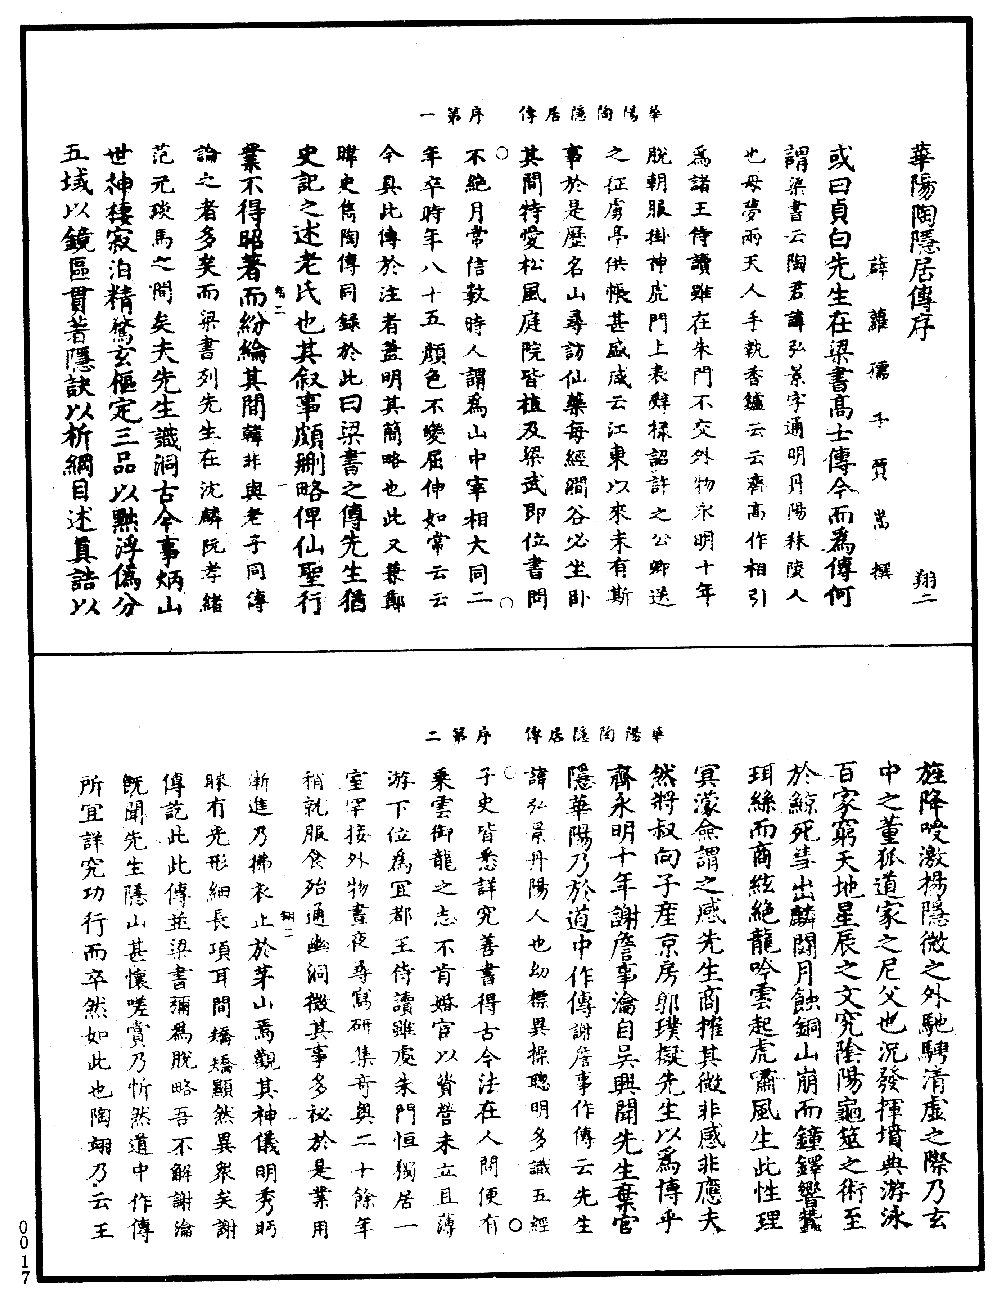 華陽陶隱居傳 序第一
華陽陶隱居傳序 翔二
薛蘿孺子賈嵩撰
或曰貞白先生在梁書高士傳今而爲傳何
謂梁書云陶君諱弘景字通明丹陽秣陵人
也母夢兩天人手執香鑪云云齊高作相引
爲諸王侍讀雖在朱門不交外物永明十年
脫朝服掛神虎門上表辭祿詔許之公卿送
之征虜亭供帳甚盛咸云江東以來未有斯
事於是歷名山尋訪仙藥每經澗谷必坐臥
其間特愛松風庭院皆植及梁武即位書問
不絶月常信數時人謂爲山中宰相大同二
年卒時年八十五顏色不變屈伸如常云云
今具此傳於注者蓋明其簡略也此又兼鄭
暐史雋陶傳同錄於此曰梁書之傳先生猶
史記之述老氏也其叙事頗刪略俾仙聖行
業不得昭著而紛綸其間韓非與老子同傳
論之者多矣而梁書列先生在沈麟阮孝緒
范元琰馬之間矣夫先生識洞古今事炳山
世神棲寂泊精鶩玄樞定三品以黜浮僞分
五域以鏡區貫著隱訣以析綱目述真誥以
華陽陶隱居傳 序第二
旌降唆激楊隱微之外馳騁清虛之際乃玄
中之董狐道家之尼父也況發揮墳典游泳
百家窮天地星辰之文究陰陽龜筮之術至
於鯨死彗出麟鬪月蝕銅山崩而鐘鐸響蠶
珥絲而商絃絶龍吟雲起虎嘯風生此性理
冥濛僉謂之感先生商搉其微非感非應夫
然將叔向子產京房郭璞擬先生以爲博乎
齊永明十年謝詹事瀹自吳興聞先生棄官
隱華陽乃於道中作傳謝詹事作傳云先生
諱弘景丹陽人也幼標異操聰明多識五經
子史皆悉詳究善書得古今法在人間便有
乘雲御龍之志不肯婚宦以貲營未立且薄
游下位爲宜都王侍讀雖處朱門恒獨居一
室罕接外物晝夜尋寫研集奇奧二十餘年
稍就服食殆通幽洞微其事多祕於是業用
漸進乃拂衣止於茅山焉觀其神儀明秀眄
睞有光形細長項耳間矯矯顯然異衆矣謝
傳訖此此傳並梁書彌爲脫略吾不解謝瀹
旣聞先生隱山甚懷嗟賞乃忻然道中作傳
所宜詳究功行而卒然如此也陶翊乃云王
0017